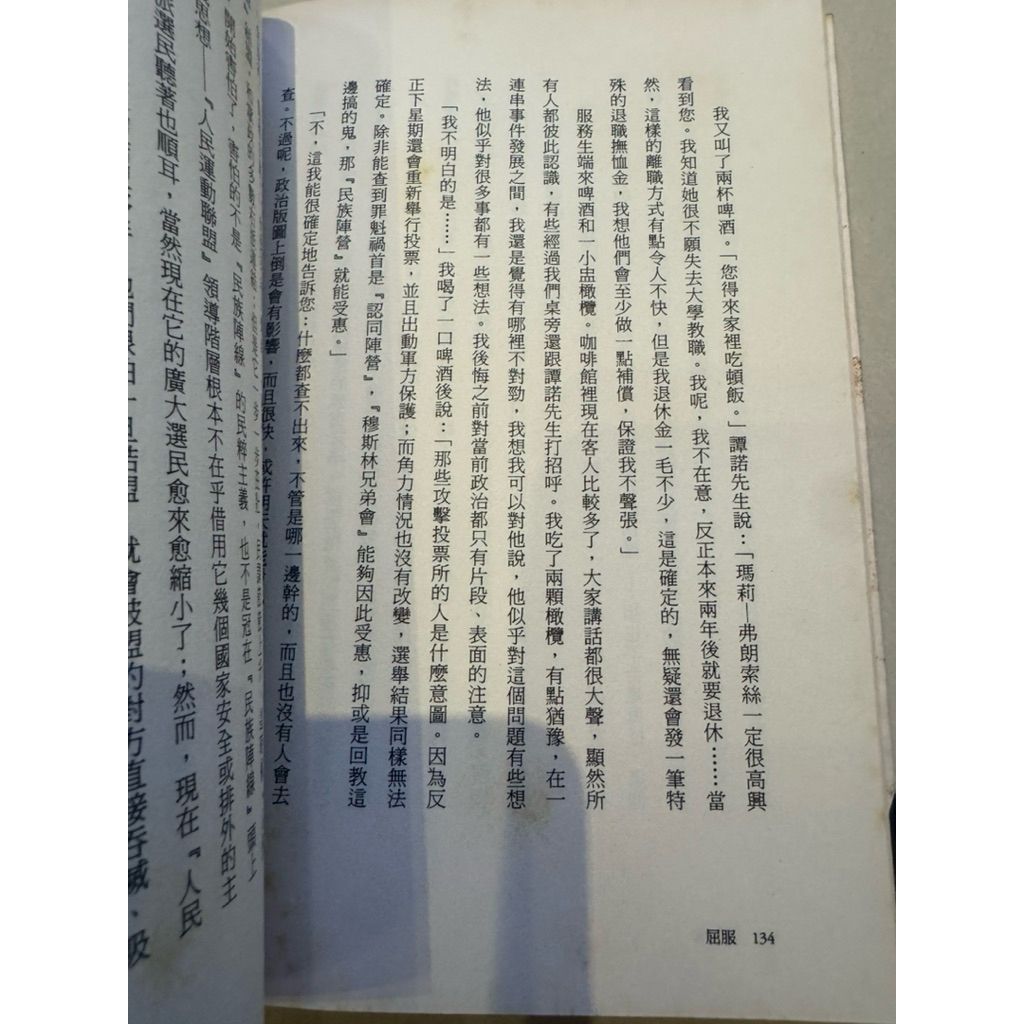 我又叫了兩杯啤酒。「您得來家裡吃頓飯。」譚諾先生說:「瑪莉—弗朗索絲一定很高興
看到您。我知道她很不願失去大學教職。我呢,我不在意,反正本來兩年後就要退休……當
然,這樣的離職方式有點令人不快,但是我退休金一毛不少,這是確定的,無疑還會發一筆特
殊的退職撫恤金,我想他們會至少做一點補償,保證我不聲張。」
服務生端來啤酒和一小盅橄欖。咖啡館裡現在客人比較多了,大家講話都很大聲,顯然所
有人都彼此認識,有些經過我們桌旁還跟譚諾先生打招呼。我吃了兩顆橄欖,有點猶豫,在一
連串事件發展之間,我還是覺得有哪裡不對勁,我想我可以對他說,他似乎對這個問題有些想
法,他似乎對很多事都有一些想法。我後悔之前對當前政治都只有片段、表面的注意。
「我不明白的是……」我喝了一口啤酒後說:「那些攻擊投票所的人是什麼意圖。因為反
正下星期還會重新舉行投票,並且出動軍方保護;而角力情況也沒有改變,選舉結果同樣無法
確定。除非能查到罪魁禍首是『認同陣營』,『穆斯林兄弟會』能夠因此受惠,抑或是回教這
邊搞的鬼,那『民族陣營』就能受惠。」
「不,這我能很確定地告訴您:什麼都查不出來,不管是哪一邊幹的,而且也沒有人會去
查。不過呢,政治版圖上倒是會有影響,而且很快,或許明天就
屈服 134
開始害怕了,害怕的不是『民族陣線』的民粹主義,也不是冠在『民族陣線』頭上
思想——『人民運動聯盟』領導階層根本不在乎借用它幾個國家安全或排外的主
派選民聽著也順耳,當然現在它的廣大選民愈來愈縮小了;然而,現在『人民
就會被盟約對方直接吞滅、吸